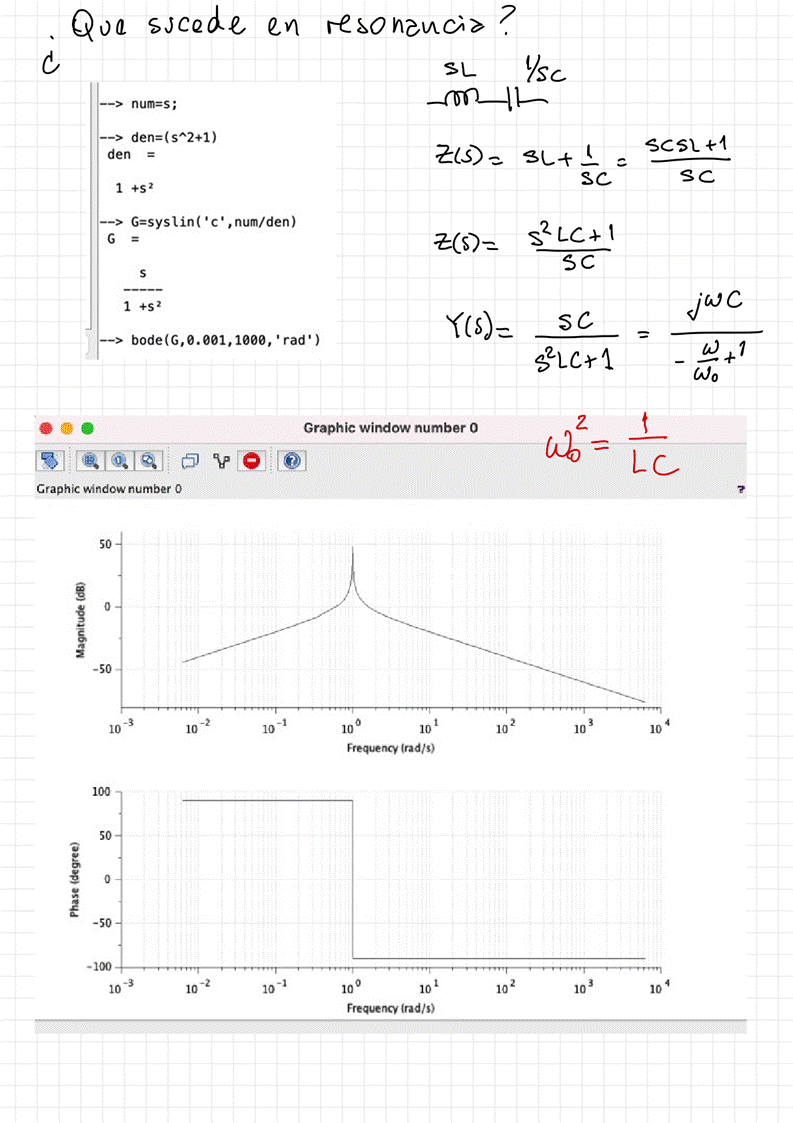 ¿Que sucede en resonancia?
--> num=s;
--> den=(s^2+1)
den =
1 +s²
--> G=syslin('c',num/den)
G =
s
-----
1 +s²
--> bode(G,0.001,1000,'rad')
SL 1/SC
Z(s)= SL + 1/SC = SCSL+1/SC
Z(s)= S²LC+1/SC
Y(s)= SC/S²LC+1 = jωC/-ω/ω₀+1
ω₀² = 1/LC
Graphic window number 0
Graphic window number 0
?
Magnitude (dB)
50
0
-50
10⁻³ 10⁻² 10⁻¹ 10⁰ 10¹ 10² 10³ 10⁴
Frequency (rad/s)
Phase (degree)
100
50
0
-50
-100
10⁻³ 10⁻² 10⁻¹ 10⁰ 10¹ 10² 10³ 10⁴
Frequency (rad/s)